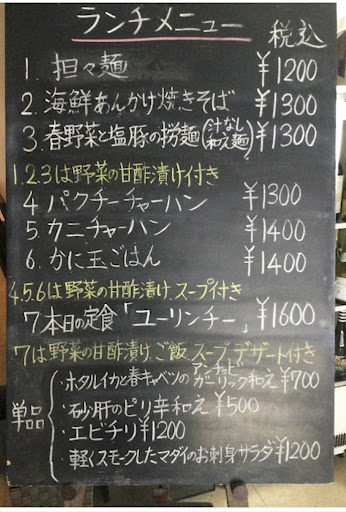 ランチメニュー 税込
1. 担々麺 ¥1200
2. 海鮮あんかけ焼きそば ¥1300
3. 春野菜と塩豚の撈麺(汁なし和え麺) ¥1300
1.2.3は野菜の甘酢漬け付き
4 パクチーチャーハン ¥1300
5 カニチャーハン ¥1400
6. かに玉ごはん ¥1400
4.5.6は野菜の甘酢漬け、スープ付き
7 本日の定食「ユーリンチー」 ¥1600
7は野菜の甘酢漬け、ご飯、スープ、デザート付き
単品
・ホタルイカと春キャベツのアンチョビガーリック和え ¥700
・砂肝のピリ辛和え ¥500
・エビチリ ¥1200
・軽くスモークしたマダイのお刺身サラダ ¥1200